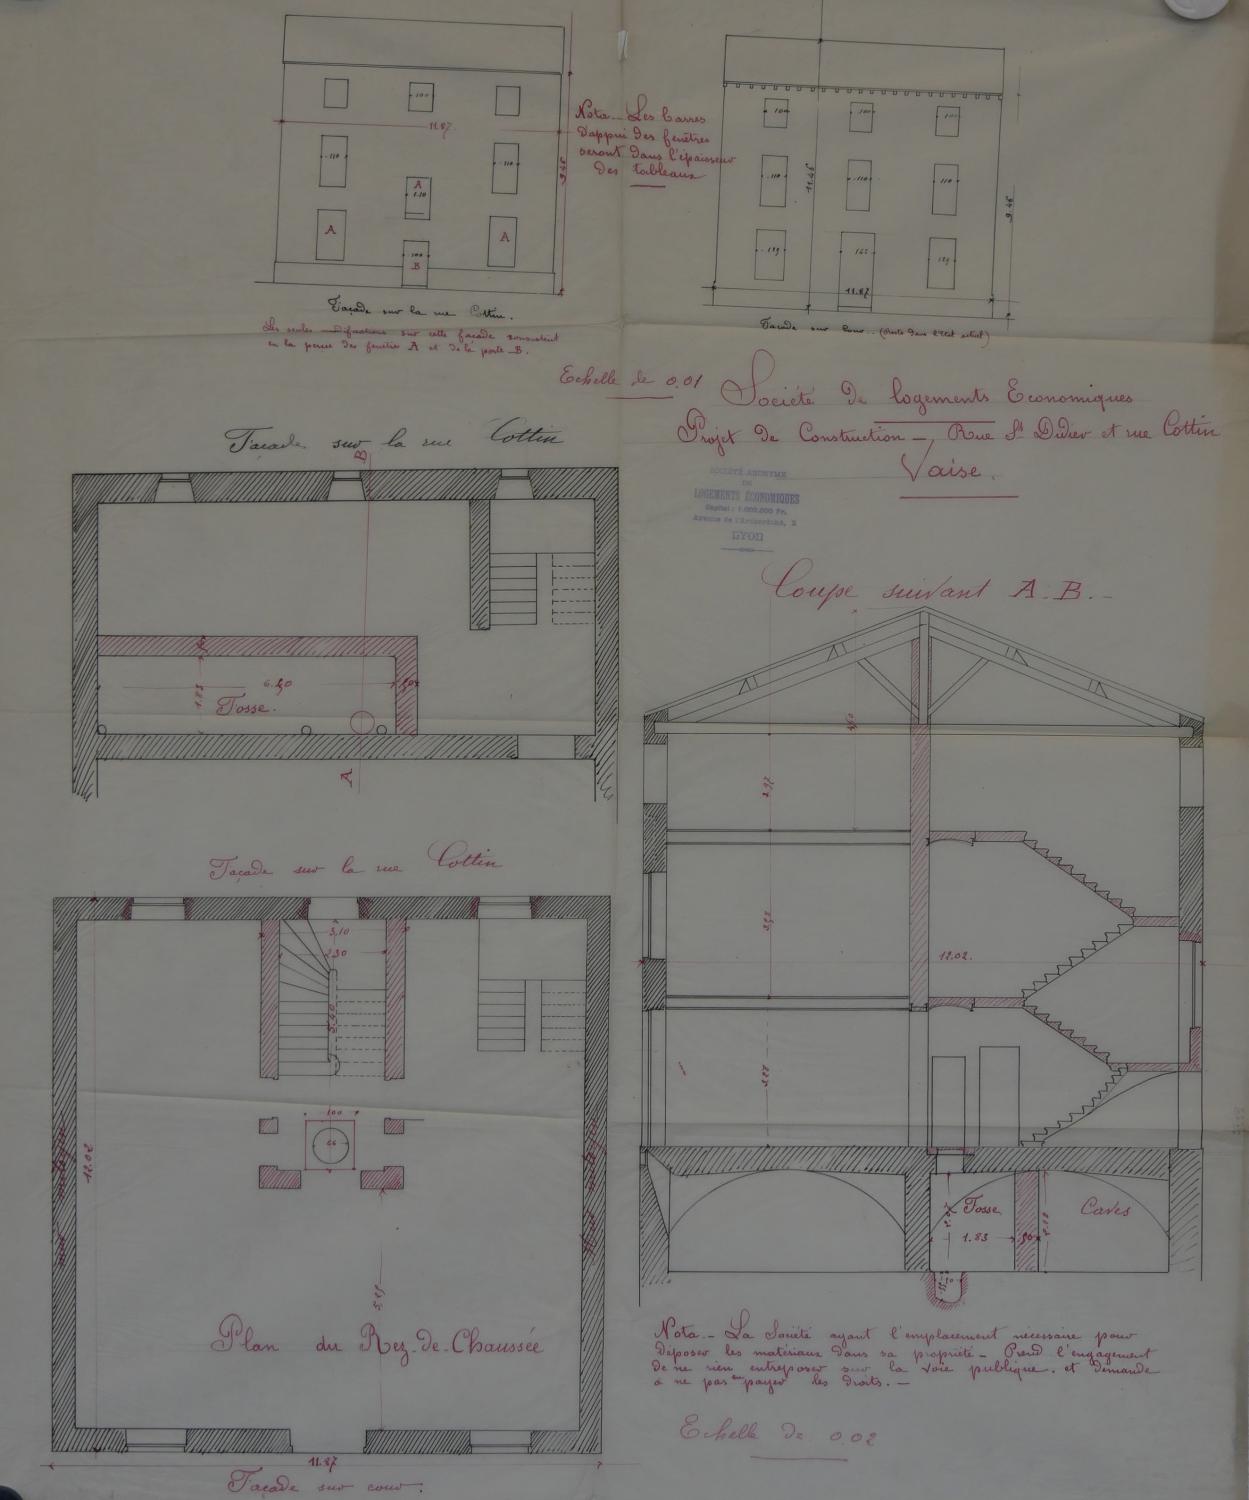 Nota - Les barres
d'appui des fenêtres
seront dans l'épaisseur
des tableaux
100
11.87
110
110
A
1.10
A
A
100
B
9.46
100
100
100
110
110
110
11.46
9.46
139
145
139
11.87
Façade sur la rue Cottin.
Les seules modifications sur cette façade consistent
en la percée des fenêtres A et de la porte B.
Façade sur cour. (Porte dans l'état actuel)
Echelle de 0.01
Société de logements Economiques
Projet de Construction -, Rue St Didier et rue Cottin
Vaise.
SOCIÉTÉ ANONYME
DE
LOGEMENTS ÉCONOMIQUES
Capital: 1.000.000 Fr.
Avenue de l'Archevêché, 2
LYON
Façade sur la rue Cottin
B
1.83
Fosse.
A
Coupe suivant A.B.-
2.97
12.02.
Fosse
Caves
1.83
50
Façade sur la rue Cottin
3,10
2,30
100
12.02
Plan du Rez-de-Chaussée
11.87
Façade sur cour.
Nota - La Société ayant l'emplacement nécessaire pour
déposer les matériaux dans sa propriété - Prend l'engagement
de ne rien entreposer sur la voie publique. et demande
à ne pas en payer les droits. -
Echelle de 0.02